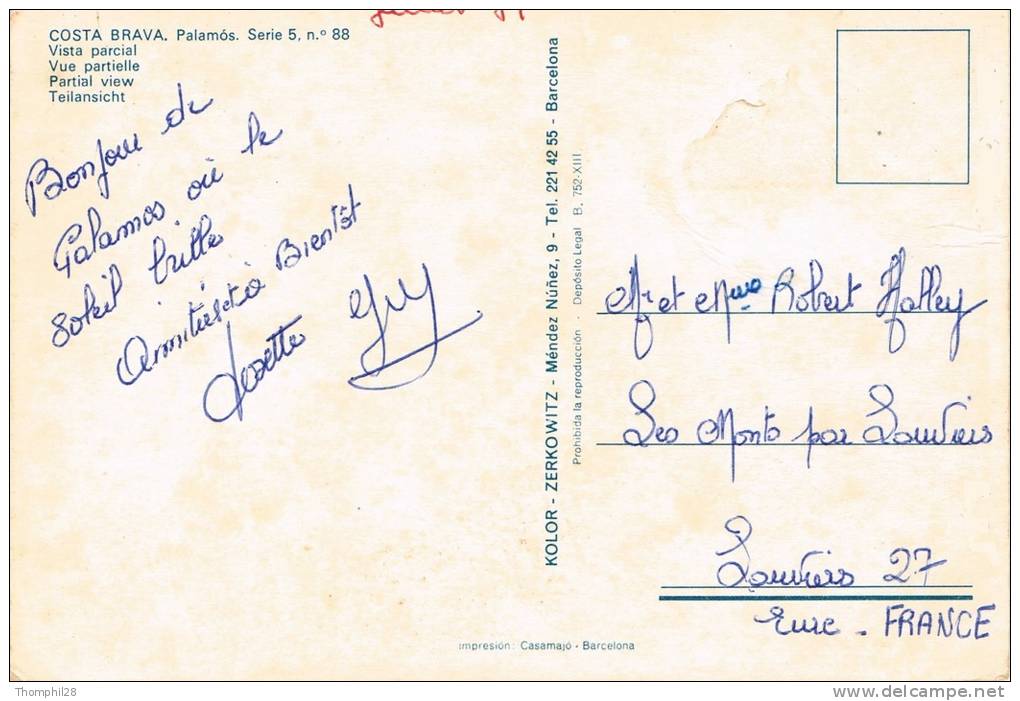 COSTA BRAVA. Palamós. Serie 5, n.º 88
Vista parcial
Vue partielle
Partial view
Teilansicht
Bonjour de
Palamos où le
soleil brille
Amitiés et à Bientôt
Josette Guy
KOLOR - ZERKOWITZ - Méndez Núñez, 9 - Tel. 221 42 55 - Barcelona
Prohibida la reproducción - Depósito Legal B. 752-XIII
Mr et Mme Robert Halley
Les Monts par Louviers
Louviers 27
Eure - FRANCE
Impresión: Casamajó - Barcelona
Thomphil28
delcampe.net